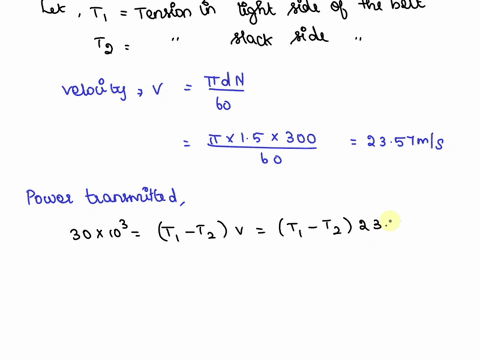 Let, T₁ = Tension in tight side of the belt
T₂ = " slack side "
velocity, V = πdN/60
= π × 1.5 × 300/60 = 23.57 m/s
Power transmitted,
30 × 10³ = (T₁ - T₂) V = (T₁ - T₂) 23.